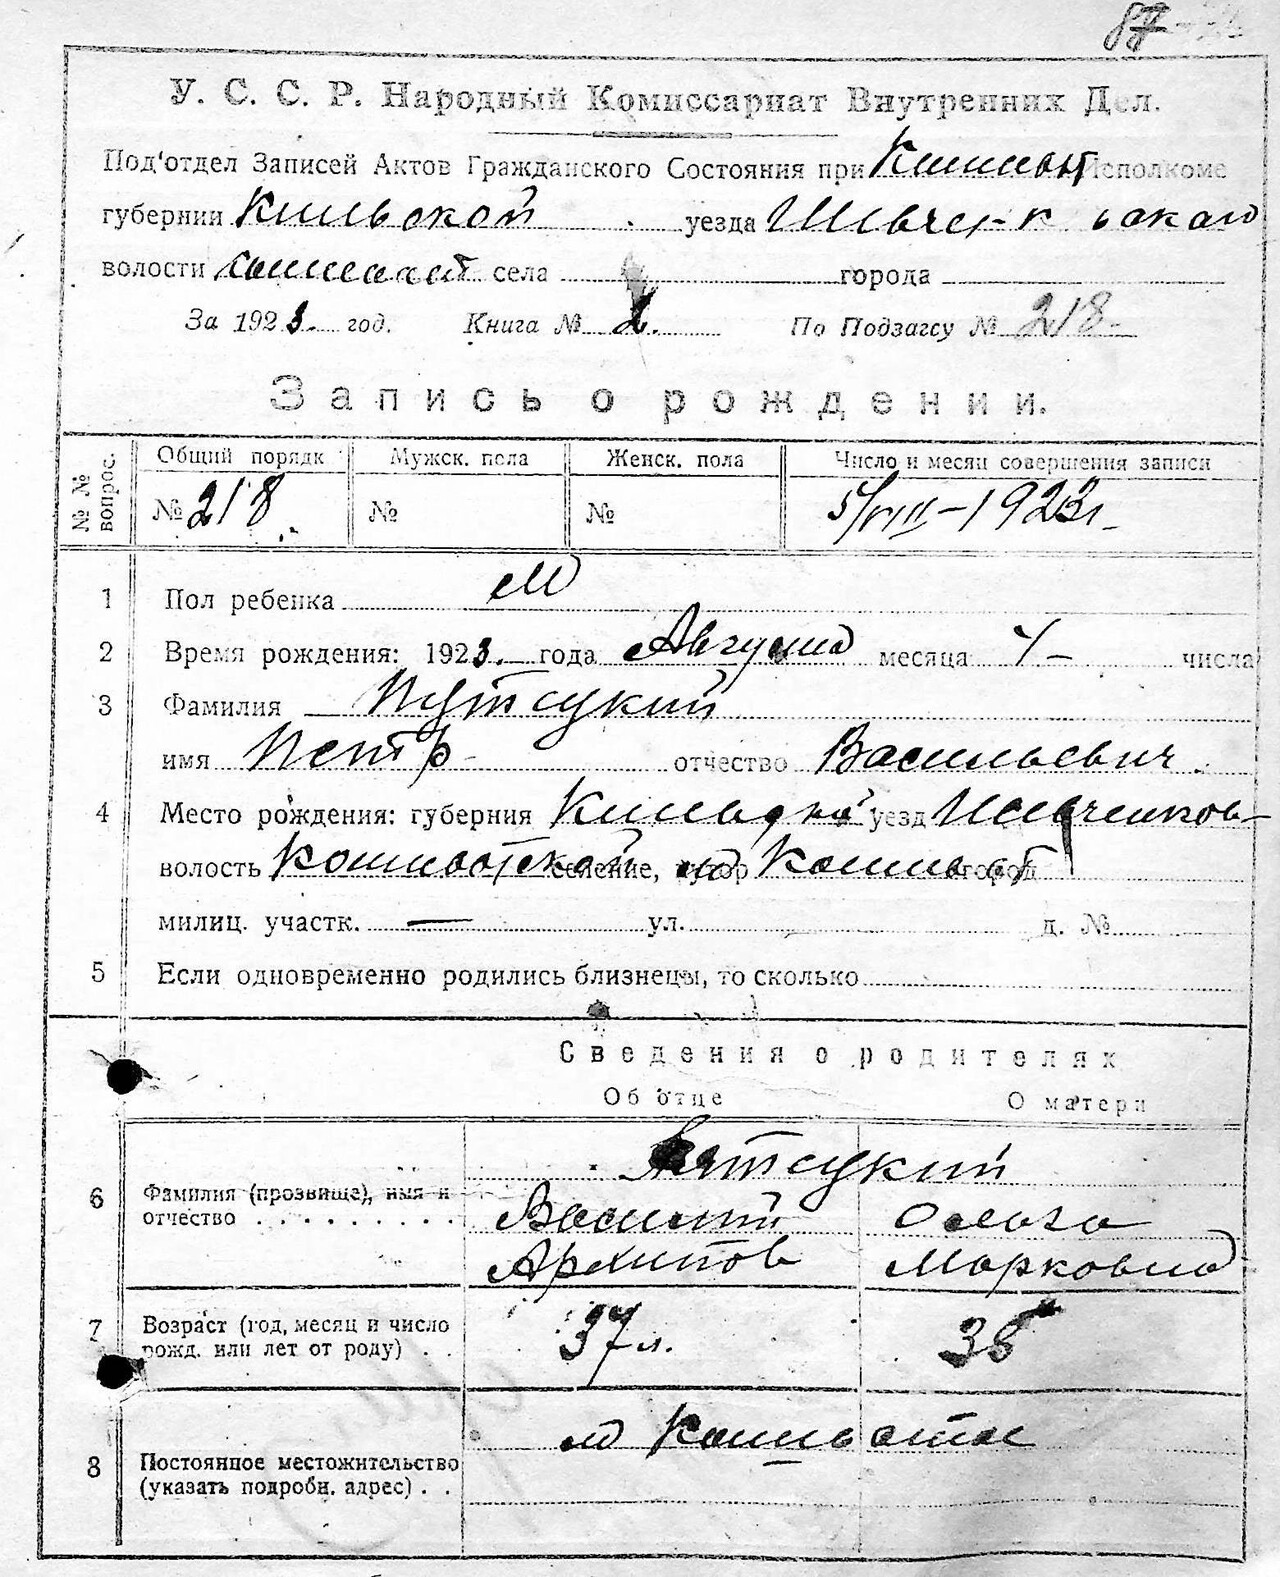 87
У. С. С. Р. Народный Комиссариат Внутренних Дел.
Под'отдел Записей Актов Гражданского Состояния при Исполкоме
губернии Киевской уезда
волости села города
За 1923. год. Книга № 2. По Подзагсу № 218.
Запись о рождении.
№ № вопрос. Общий порядк Мужск. пола Женск. пола Число и месяц совершения записи
№ 218 № № 5/VIII–1923 г.
1 Пол ребенка М
2 Время рождения: 1923. года Августа месяца 4 числа
3 Фамилия
имя Петр отчество Васильевич
4 Место рождения: губерния Киевская уезд Шевченков–
волость селение, хутор город
милиц. участк. — ул. д. №
5 Если одновременно родились близнецы, то сколько
Сведения о родителях
Об отце О матери
6 Фамилия (прозвище), имя и
отчество Василий
Архипов Марковна
7 Возраст (год, месяц и число
рожд. или лет от роду) 37 л.
8 Постоянное местожительство
(указать подробн. адрес)